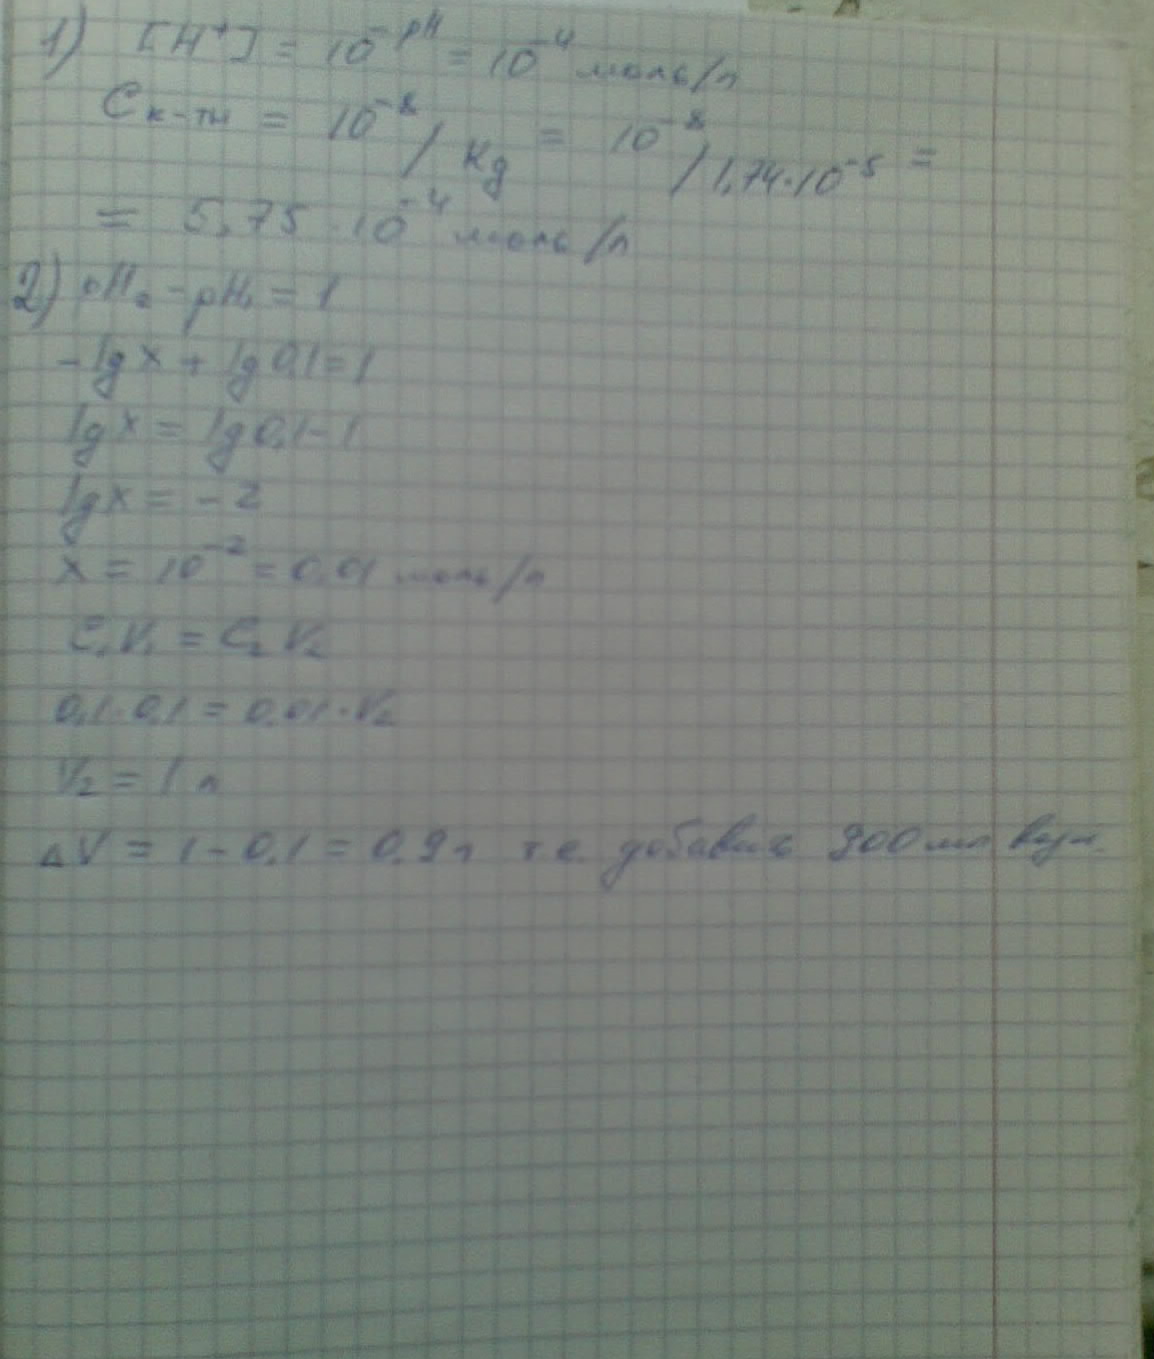 1) [H⁺] = 10⁻ᵖᴴ = 10⁻⁴ моль/л
Cк-ты = 10⁻⁸ / Kд = 10⁻⁸ / 1,74·10⁻⁵ =
= 5,75·10⁻⁴ моль/л
2) pH₂ - pH₁ = 1
-lg x + lg 0,1 = 1
lg x = lg 0,1 - 1
lg x = -2
x = 10⁻² = 0,01 моль/л
C₁V₁ = C₂V₂
0,1·0,1 = 0,01·V₂
V₂ = 1 л
ΔV = 1 - 0,1 = 0,9 л т.е. добавить 900 мл